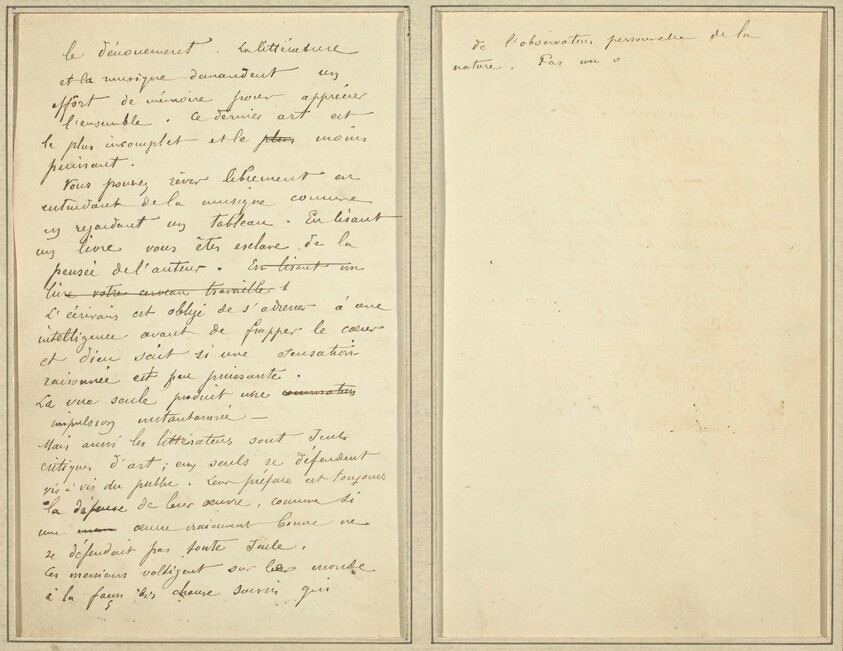 le dénouement. La littérature
et la musique demandent un
effort de mémoire pour apprécier
l'ensemble. Ce dernier art est
le plus incomplet et le plus moins
puissant.
Vous pouvez rêver librement en
entendant de la musique comme
en regardant un tableau. En lisant
un livre vous êtes esclave de la
pensée de l'auteur. En lisant un
livre votre cerveau travaille
L'écrivain est obligé de s'adresser à une
intelligence avant de frapper le cœur
et dieu sait si une sensation
raisonnée est peu puissante.
La vue seule produit une
impulsion instantanée —
Mais aussi les littérateurs sont seuls
critiques d'art; eux seuls se défendent
vis à vis du public. Leur préface est toujours
la défense de leur œuvre, comme si
une œuvre vraiment bonne ne
se défendait pas toute seule.
Ces messieurs voltigent sur le monde
à la façon des chauve souris qui
de l'observation personnelle de la
nature. Pas un